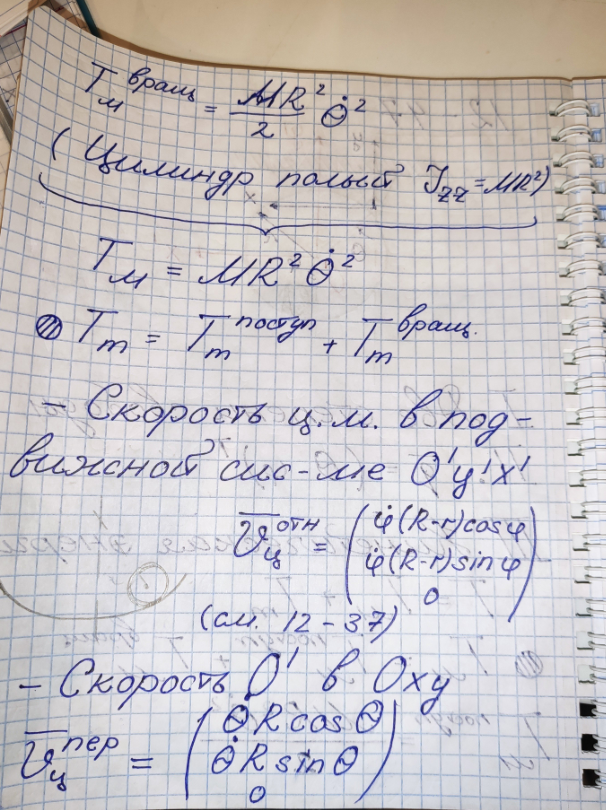 T_м^вращ = MR²/2 θ̇²
( Цилиндр полый J_zz = MR²)
T_м = MR² θ̇²
T_m = T_m^поступ + T_m^вращ.
– Скорость ц.м. в под-
вижной сис-ме O'y'x'
v̅_ц^отн = ( φ̇(R-r)cosφ
φ̇(R-r)sinφ
0 )
(см. 12-3.7)
– Скорость O' в Oxy
v̅_ц^пер = ( θ̇R cosθ
θ̇R sinθ
0 )